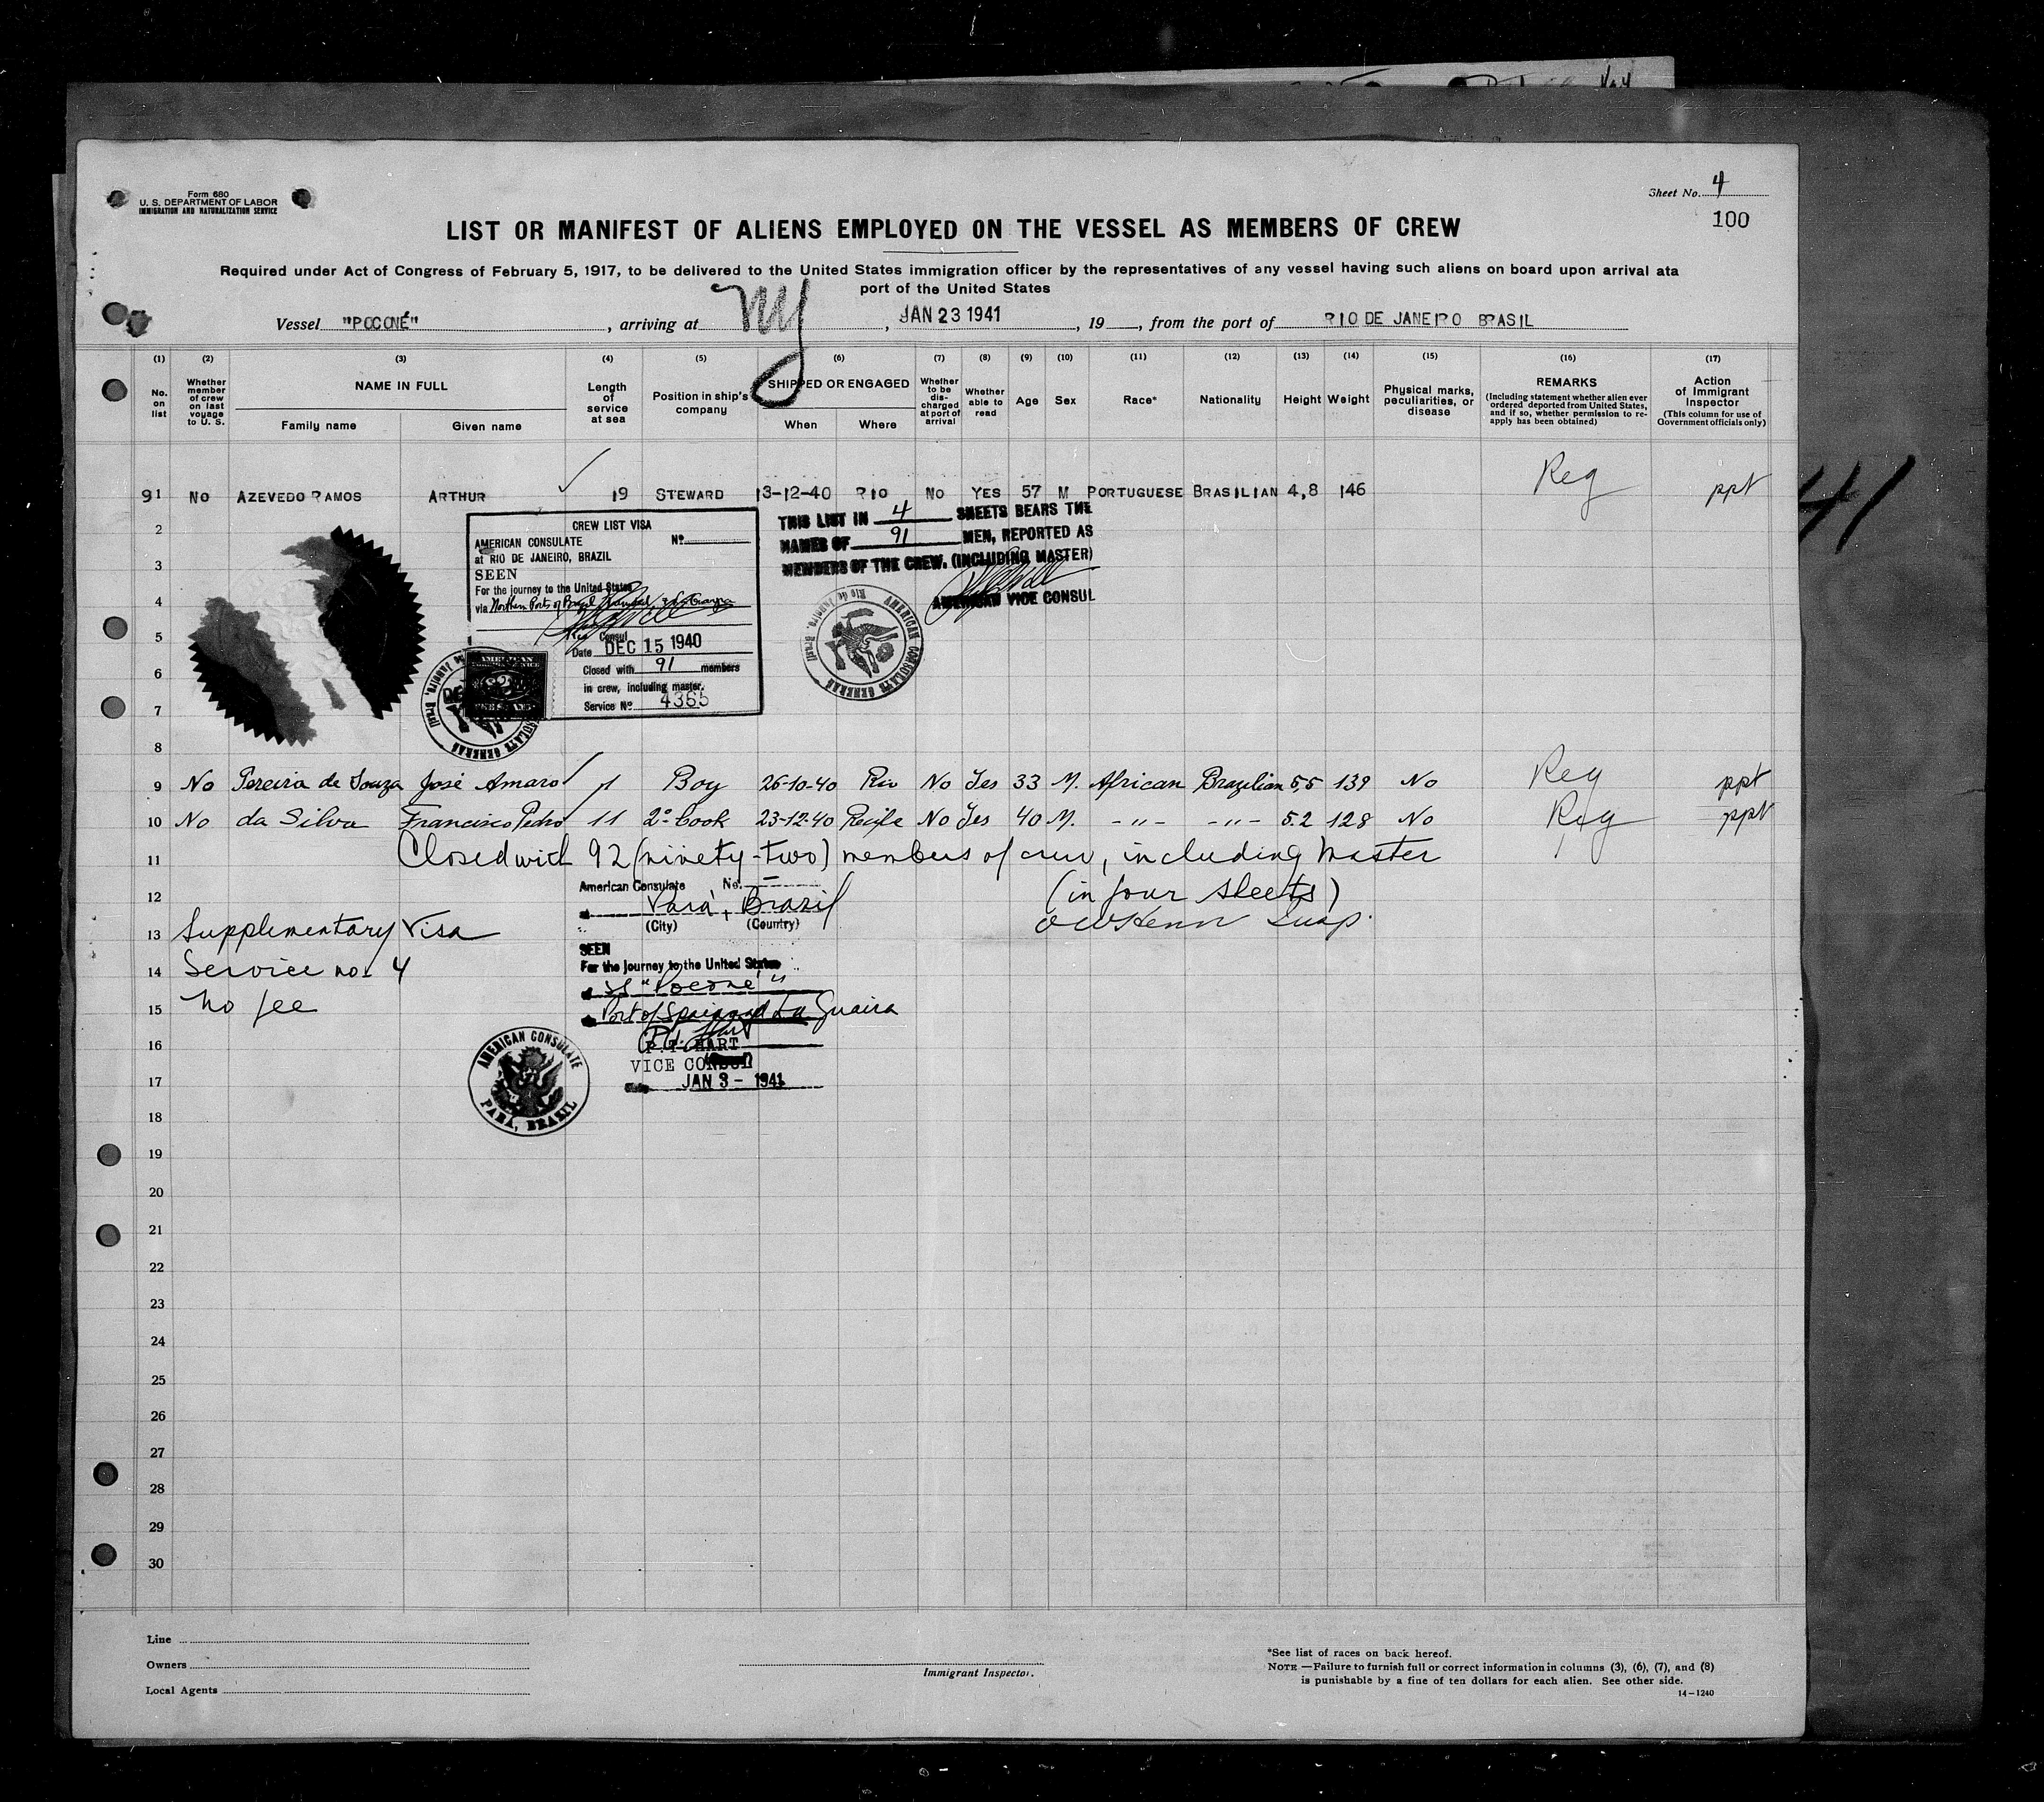 Form 680
U. S. DEPARTMENT OF LABOR
IMMIGRATION AND NATURALIZATION SERVICE
Sheet No. 4
100
LIST OR MANIFEST OF ALIENS EMPLOYED ON THE VESSEL AS MEMBERS OF CREW
Required under Act of Congress of February 5, 1917, to be delivered to the United States immigration officer by the representatives of any vessel having such aliens on board upon arrival at a
port of the United States
Vessel "POCONÉ", arriving at NY, JAN 23 1941, 19__, from the port of RIO DE JANEIRO BRASIL
(1) (2) (3) (4) (5) (6) (7) (8) (9) (10) (11) (12) (13) (14) (15) (16) (17)
No. on list
Whether member of crew on last voyage to U. S.
NAME IN FULL
Family name
Given name
Length of service at sea
Position in ship's company
SHIPPED OR ENGAGED
When
Where
Whether to be discharged at port of arrival
Whether able to read
Age
Sex
Race*
Nationality
Height
Weight
Physical marks, peculiarities, or disease
REMARKS
(Including statement whether alien ever ordered deported from United States, and if so, whether permission to reapply has been obtained)
Action of Immigrant Inspector
(This column for use of Government officials only)
91 NO AZEVEDO RAMOS ARTHUR 19 STEWARD 13-12-40 RIO NO YES 57 M PORTUGUESE BRASILIAN 4,8 146 Reg ppt
41
2
3
4
5
6
7
8
CREW LIST VISA
AMERICAN CONSULATE No.
at RIO DE JANEIRO, BRAZIL
SEEN
For the journey to the United States
via Northern Ports of Brazil
Consul
Date DEC 15 1940
Closed with 91 members
in crew, including master.
Service No. 4365
THIS LIST IN 4 SHEETS BEARS THE
NAMES OF 91 MEN, REPORTED AS
MEMBERS OF THE CREW. (INCLUDING MASTER)
AMERICAN VICE CONSUL
AMERICAN CONSULATE GENERAL
Rio de Janeiro, Brasil
9 No Pereira de Souza José Amaro 1 Boy 26-10-40 Rio No Yes 33 M. African Brazilian 5,5 139 No Reg ppt
10 No da Silva Francisco Pedro 11 2º Cook 23-12-40 Recife No Yes 40 M. -"- -"- 5.2 128 No Reg ppt
11 Closed with 92 (ninety-two) members of crew, including Master
12 (in four sheets)
American Consulate No. —
Pará, Brazil
(City) (Country)
13 Supplementary Visa
SEEN
14 Service no. 4
For the journey to the United States
SS "Poconé"
15 no fee
Port of Spain and La Guaira
16 P. T. HART
VICE CONSUL
17 JAN 3 - 1941
AMERICAN CONSULATE
PARÁ, BRAZIL
18
19
20
21
22
23
24
25
26
27
28
29
30
Line
Owners
Local Agents
Immigrant Inspector.
*See list of races on back hereof.
NOTE.—Failure to furnish full or correct information in columns (3), (6), (7), and (8)
is punishable by a fine of ten dollars for each alien. See other side.
14-1240